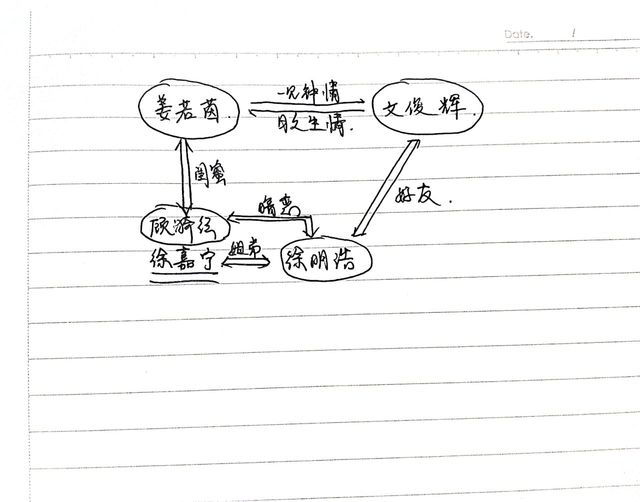 Date. /
一见钟情
姜若茵. 文俊辉.
日久生情.
闺蜜
好友.
暗恋
徐嘉宁 徐明浩